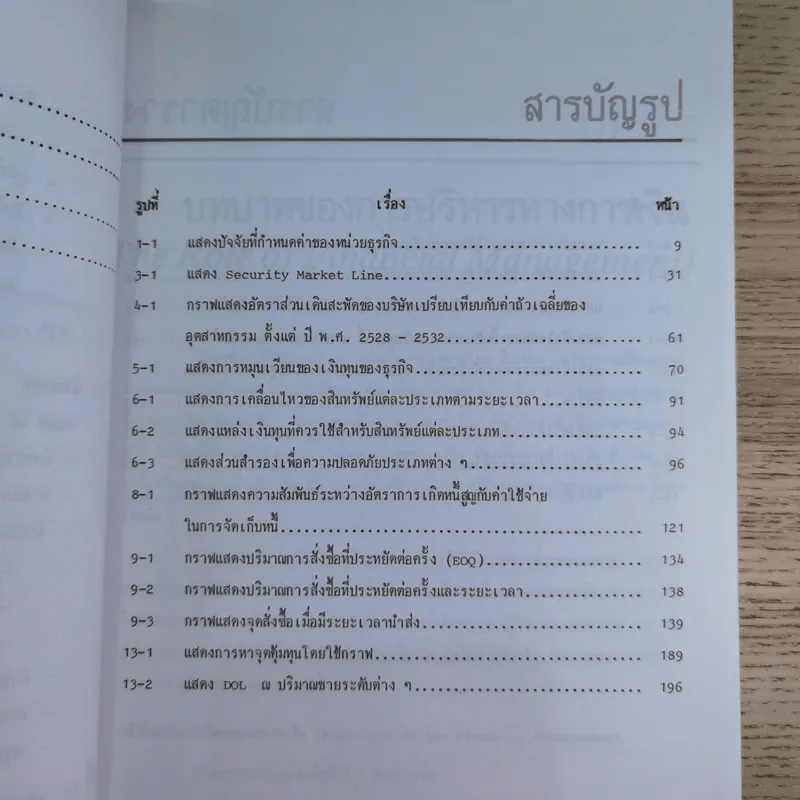 สารบัญรูป
รูปที่ เรื่อง หน้า
1-1 แสดงปัจจัยที่กำหนดค่าของหน่วยธุรกิจ 9
3-1 แสดง Security Market Line 31
4-1 กราฟแสดงอัตราส่วนเดินสะพัดของบริษัทเปรียบเทียบกับค่าถัวเฉลี่ยของ
อุตสาหกรรม ตั้งแต่ ปี พ.ศ. 2528 - 2532 61
5-1 แสดงการหมุนเวียนของเงินทุนของธุรกิจ 70
6-1 แสดงการเคลื่อนไหวของสินทรัพย์แต่ละประเภทตามระยะเวลา 91
6-2 แสดงแหล่งเงินทุนที่ควรใช้สำหรับสินทรัพย์แต่ละประเภท 94
6-3 แสดงส่วนสำรองเพื่อความปลอดภัยประเภทต่าง ๆ 96
8-1 กราฟแสดงความสัมพันธ์ระหว่างอัตราการเกิดหนี้สูญกับค่าใช้จ่าย
ในการจัดเก็บหนี้ 121
9-1 กราฟแสดงปริมาณการสั่งซื้อที่ประหยัดต่อครั้ง (EOQ) 134
9-2 กราฟแสดงปริมาณการสั่งซื้อที่ประหยัดต่อครั้งและระยะเวลา 138
9-3 กราฟแสดงจุดสั่งซื้อเมื่อมีระยะเวลานำส่ง 139
13-1 แสดงการหาจุดคุ้มทุนโดยใช้กราฟ 189
13-2 แสดง DOL ณ ปริมาณขายระดับต่าง ๆ 196